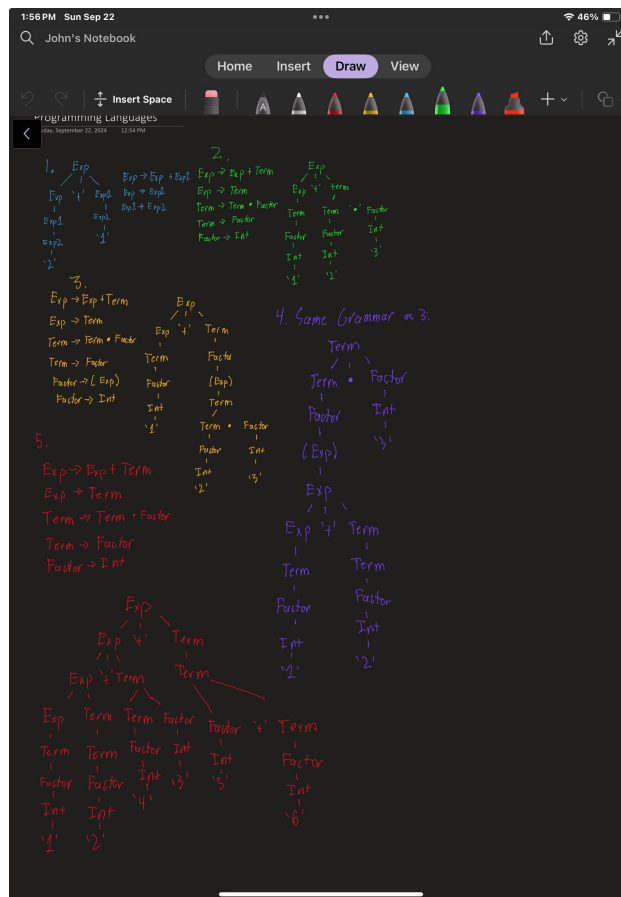 1:56 PM Sun Sep 22
46%
John's Notebook
Home Insert Draw View
Insert Space
A
Programming Languages
day, September 22, 2024 12:54 PM
1.
Exp
Exp '+' Exp1
Exp1 Exp2
Exp2 '1'
'2'
Exp → Exp + Exp1
Exp → Exp1
Exp1 → Exp2
2.
Exp → Exp + Term
Exp → Term
Term → Term * Factor
Term → Factor
Factor → Int
Exp
Exp '+' term
Term Term '*' Factor
Factor Factor Int
Int Int '3'
'1' '2'
3.
Exp → Exp + Term
Exp → Term
Term → Term * Factor
Term → Factor
Factor → ( Exp )
Factor → Int
Exp
Exp '+' Term
Term Factor
Factor (Exp)
Int Term
'1' Term * Factor
Factor Int
Int '3'
'2'
4. Same Grammar as 3.
Term
Term * Factor
Factor Int
(Exp) '3'
Exp
Exp '+' Term
Term Term
Factor Factor
Int Int
'1' '2'
5.
Exp → Exp + Term
Exp → Term
Term → Term * Factor
Term → Factor
Factor → Int
Exp
Exp '+' Term
Exp '+' Term Term
Exp Term Term Factor Factor '+' Term
Term Term Factor Int Int Factor
Factor Factor Int '3' '5' Int
Int Int '4' '6'
'1' '2'